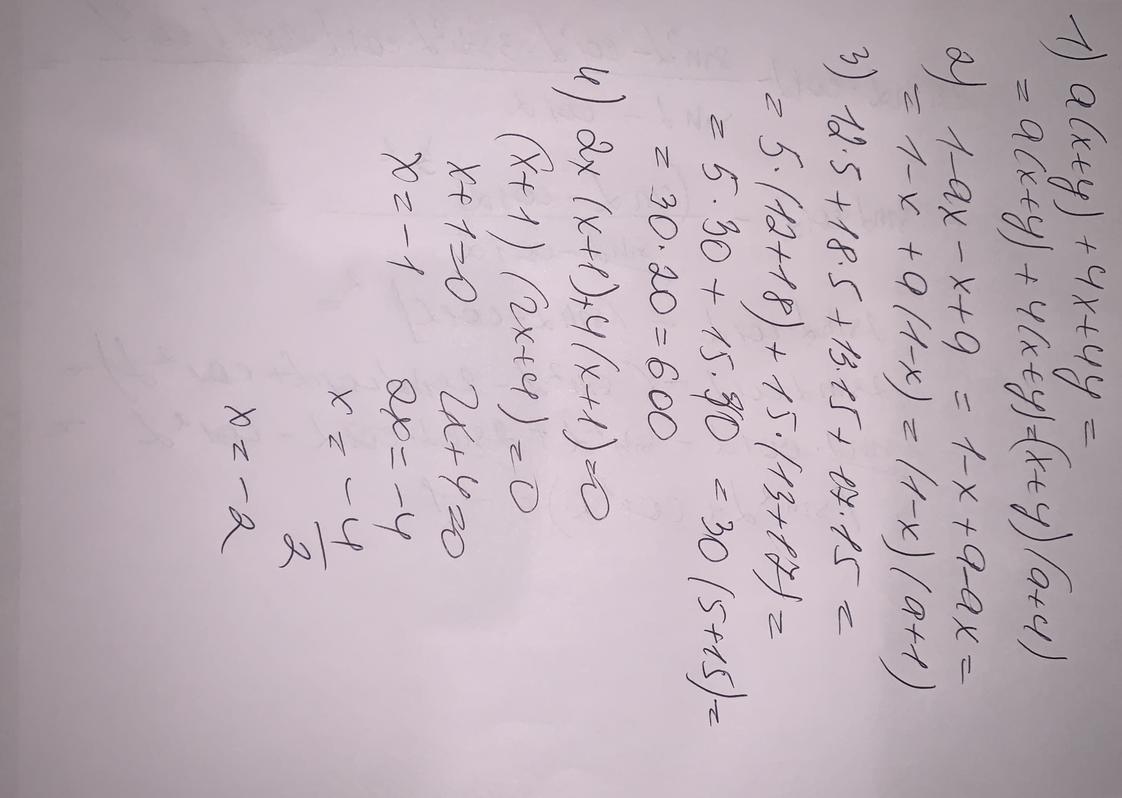 1) a(x+y) + 4x+4y =
= a(x+y) + 4(x+y)=(x+y)(a+4)
2) 1-ax-x+a = 1-x+a-ax =
= 1-x+a(1-x) = (1-x)(a+1)
3) 12·5+18·5+13·15+17·15 =
= 5·(12+18)+15·(13+17) =
= 5·30+15·30 = 30(5+15) =
= 30·20=600
4) 2x(x+1)+4(x+1)=0
(x+1)(2x+4)=0
x+1=0 2x+4=0
x=-1 2x=-4
x = -4/2
x=-2